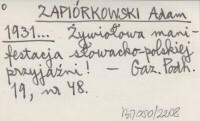 ZAPIÓRKOWSKI Adam
1931... Żywiołowa mani-
festacja słowacko-polskiej
przyjaźni! — Gaz. Podh.
19, nr 48.